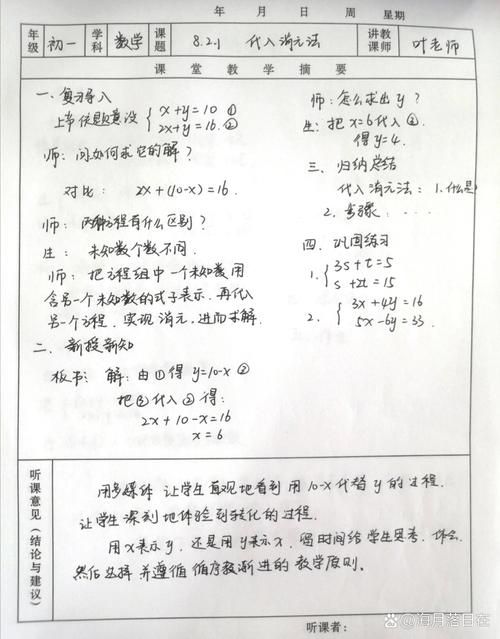 年 月 日 周 星期
年级 初一 学科 数学 课题 8.2.1 代入消元法 讲教课师 叶老师
课 堂 教 学 摘 要
一、复习导入
上节课题意设 { x+y=10 ①
2x+y=16. ②
师：问如何求它的解？
对比： 2x+(10-x)=16.
师： 两种方程有什么区别？
生： 未知数个数不同.
师： 把方程组中一个未知数用
含另一个未知数的式子表示，再代入
另一个方程，实现消元，进而求解.
二、新授新知
板书： 解：由①得 y=10-x ③
把③代入②得：
2x+10-x=16
x=6
师：怎么求出y？
生：把x=6代入③.
得y=4.
三、归纳总结
代入消元法：1.什么是
2.步骤：....
四、巩固练习
1. { 3s+t=5
s+2t=15
2. { 3x+4y=16
5x-6y=33.
听课意见（结论与建议）
用多媒体 让学生直观地看到用10-x代替y的过程.
让学生深刻地体验到转化的过程.
用x表示y，还是用y表示x，留时间给学生思考，体会.
然后选择 并遵循循序渐进的教学原则.
听课者：
海月落日在